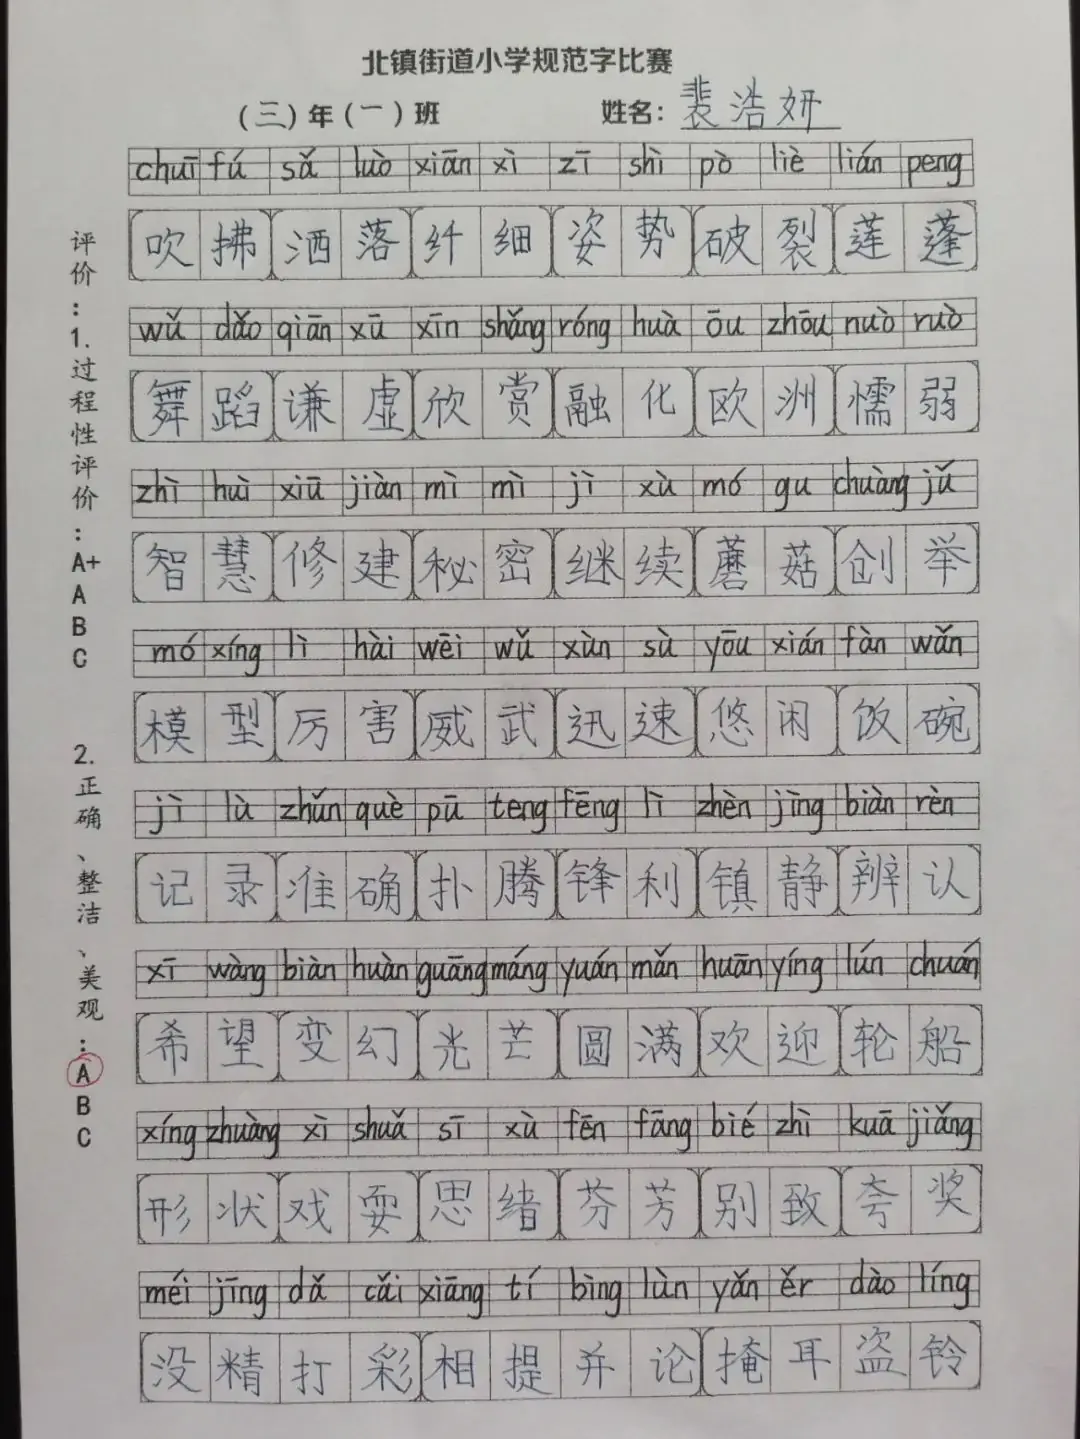 北镇街道小学规范字比赛
（三）年（一）班 姓名：裴浩妍
chuī fú sǎ luò xiān xì zī shì pò liè lián peng
吹拂洒落纤细姿势破裂莲蓬
wǔ dǎo qiān xū xīn shǎng róng huà ōu zhōu nuò ruò
舞蹈谦虚欣赏融化欧洲懦弱
zhì huì xiū jiàn mì mì jì xù mó gu chuàng jǔ
智慧修建秘密继续蘑菇创举
mó xíng lì hài wēi wǔ xùn sù yōu xián fàn wǎn
模型厉害威武迅速悠闲饭碗
jì lù zhǔn què pū teng fēng lì zhèn jìng biàn rèn
记录准确扑腾锋利镇静辨认
xī wàng biàn huàn guāng máng yuán mǎn huān yíng lún chuán
希望变幻光芒圆满欢迎轮船
xíng zhuàng xì shuǎ sī xù fēn fāng bié zhì kuā jiǎng
形状戏耍思绪芬芳别致夸奖
méi jīng dǎ cǎi xiāng tí bìng lùn yǎn ěr dào líng
没精打彩相提并论掩耳盗铃
评价：1.过程性评价：A+ A B C
2.正确、整洁、美观：A B C